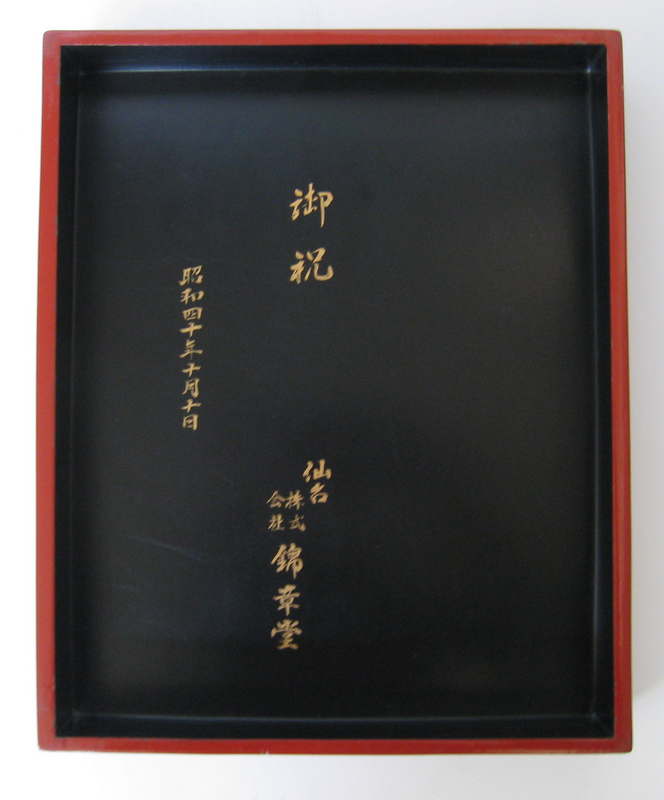 御祝
仙台
株式
会社
錦章堂
昭和四十年十月十日